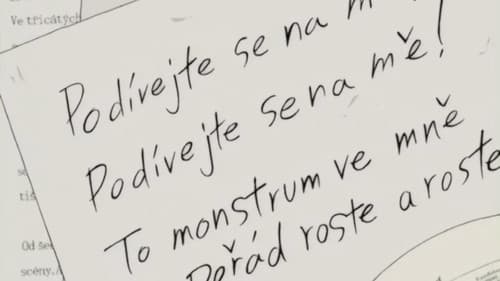 Ve třicátých
Podívejte se na m
Podívejte se na mě!
To monstrum ve mně
Pořád roste a roste
Od
scény.